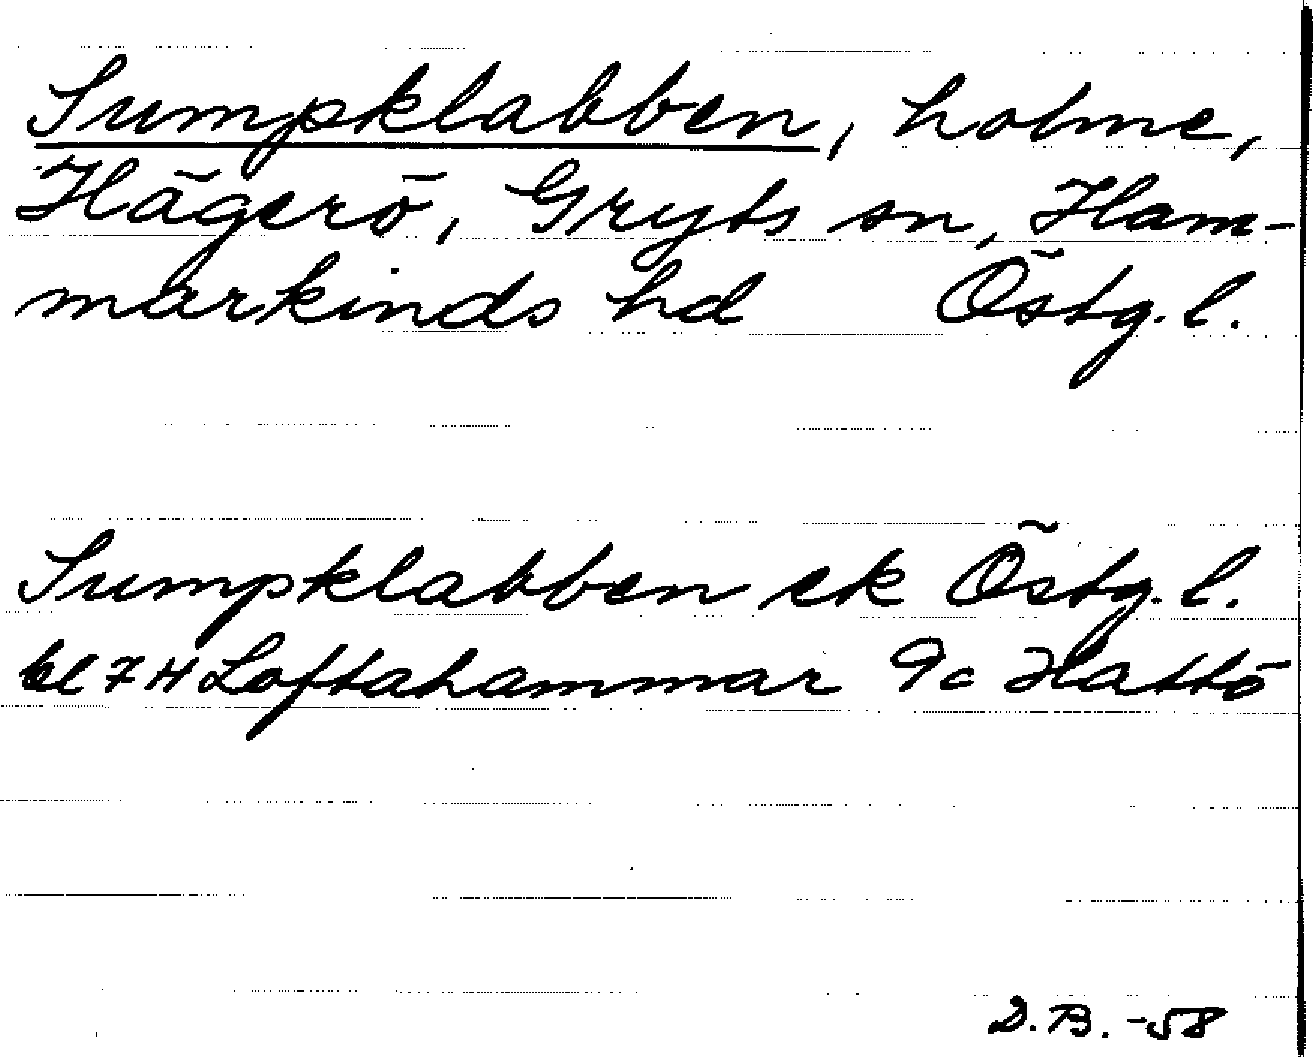 Sumpklabben, holme,
Hägerö, Gryts sn, Ham-
markinds hd Östg. l.
Sumpklabben ek Östg. l.
bl 7 H Loftahammar 9c Hattö
D.B. -58